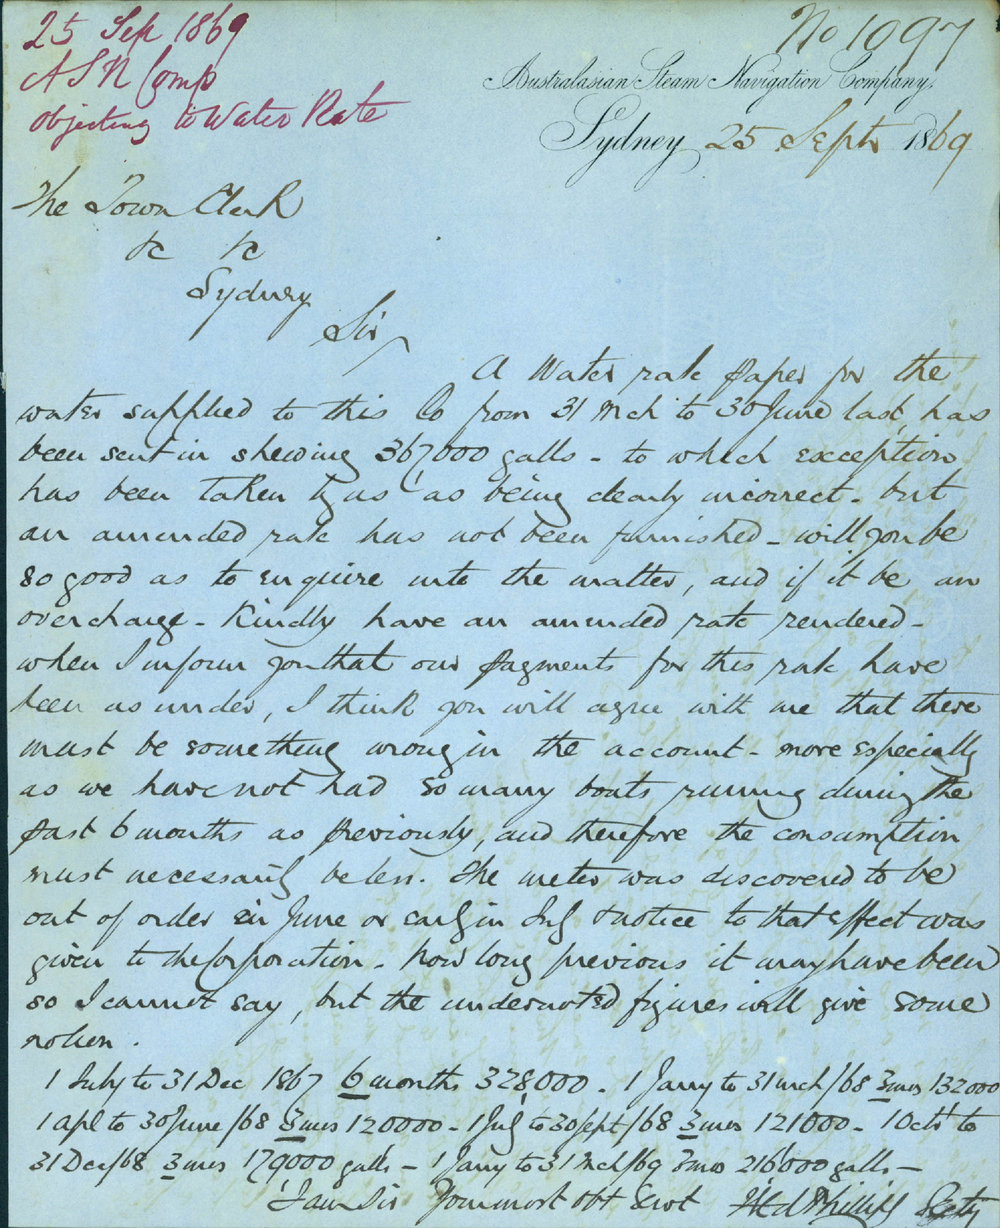 25 Sep 1869
A S N Comp
objecting to Water Rate
No 1097
Australasian Steam Navigation Company,
Sydney 25 Septr 1869
The Town Clerk
&c &c
Sydney
Sir,
A Water rate paper for the
water supplied to this Co from 31 Mch to 30 June last, has
been sent in shewing 367,000 galls - to which exception
has been taken by us as being clearly incorrect - but
an amended rate has not been furnished - will you be
so good as to enquire into the matter, and if it be an
overcharge - Kindly have an amended rate rendered -
when I inform you that our payments for this rate have
been as under, I think you will agree with me that there
must be something wrong in the account - more especially
as we have not had so many boats running during the
past 6 months as previously, and therefore the consumption
must necessarily be less. The meter was discovered to be
out of order in June or early in July & notice to that effect was
given to the Corporation - how long previous it may have been
so I cannot say, but the undernoted figures will give some
notion.
1 July to 31 Dec 1867 6 months 328,000 - 1 Jany to 31 Mch /68 3 mos 132000
1 Apl to 30 June /68 3 mos 120000 - 1 July to 30 Sept /68 3 mos 121000 - 1 Octr to
31 Dec /68 3 mos 179000 galls - 1 Jany to 31 Mch /69 3 mos 216000 galls -
I am Sir Your most obt Servt Phillips Secty